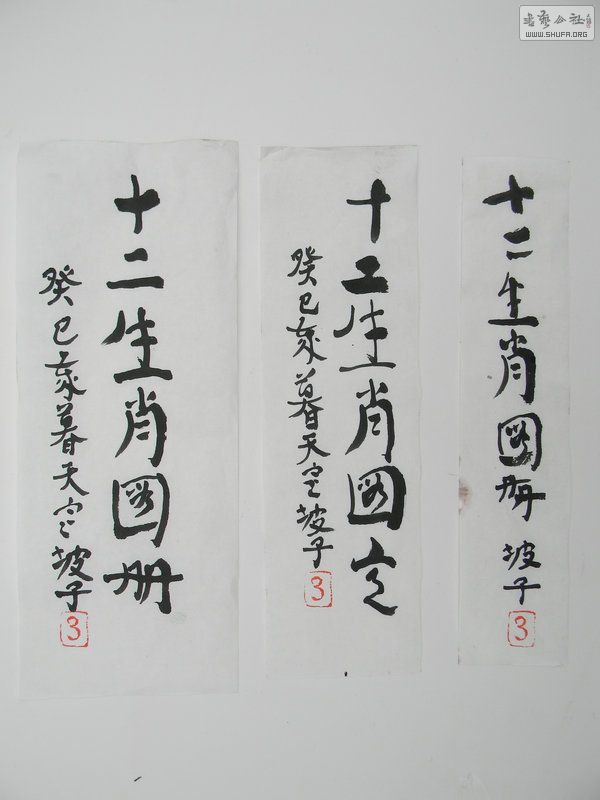 書藝公社
WWW.SHUFA.ORG
十二生肖图册
癸巳岁暮天寒坡子
3
十二生肖图
癸巳岁暮天寒坡子
3
十二生肖图册
坡子
3